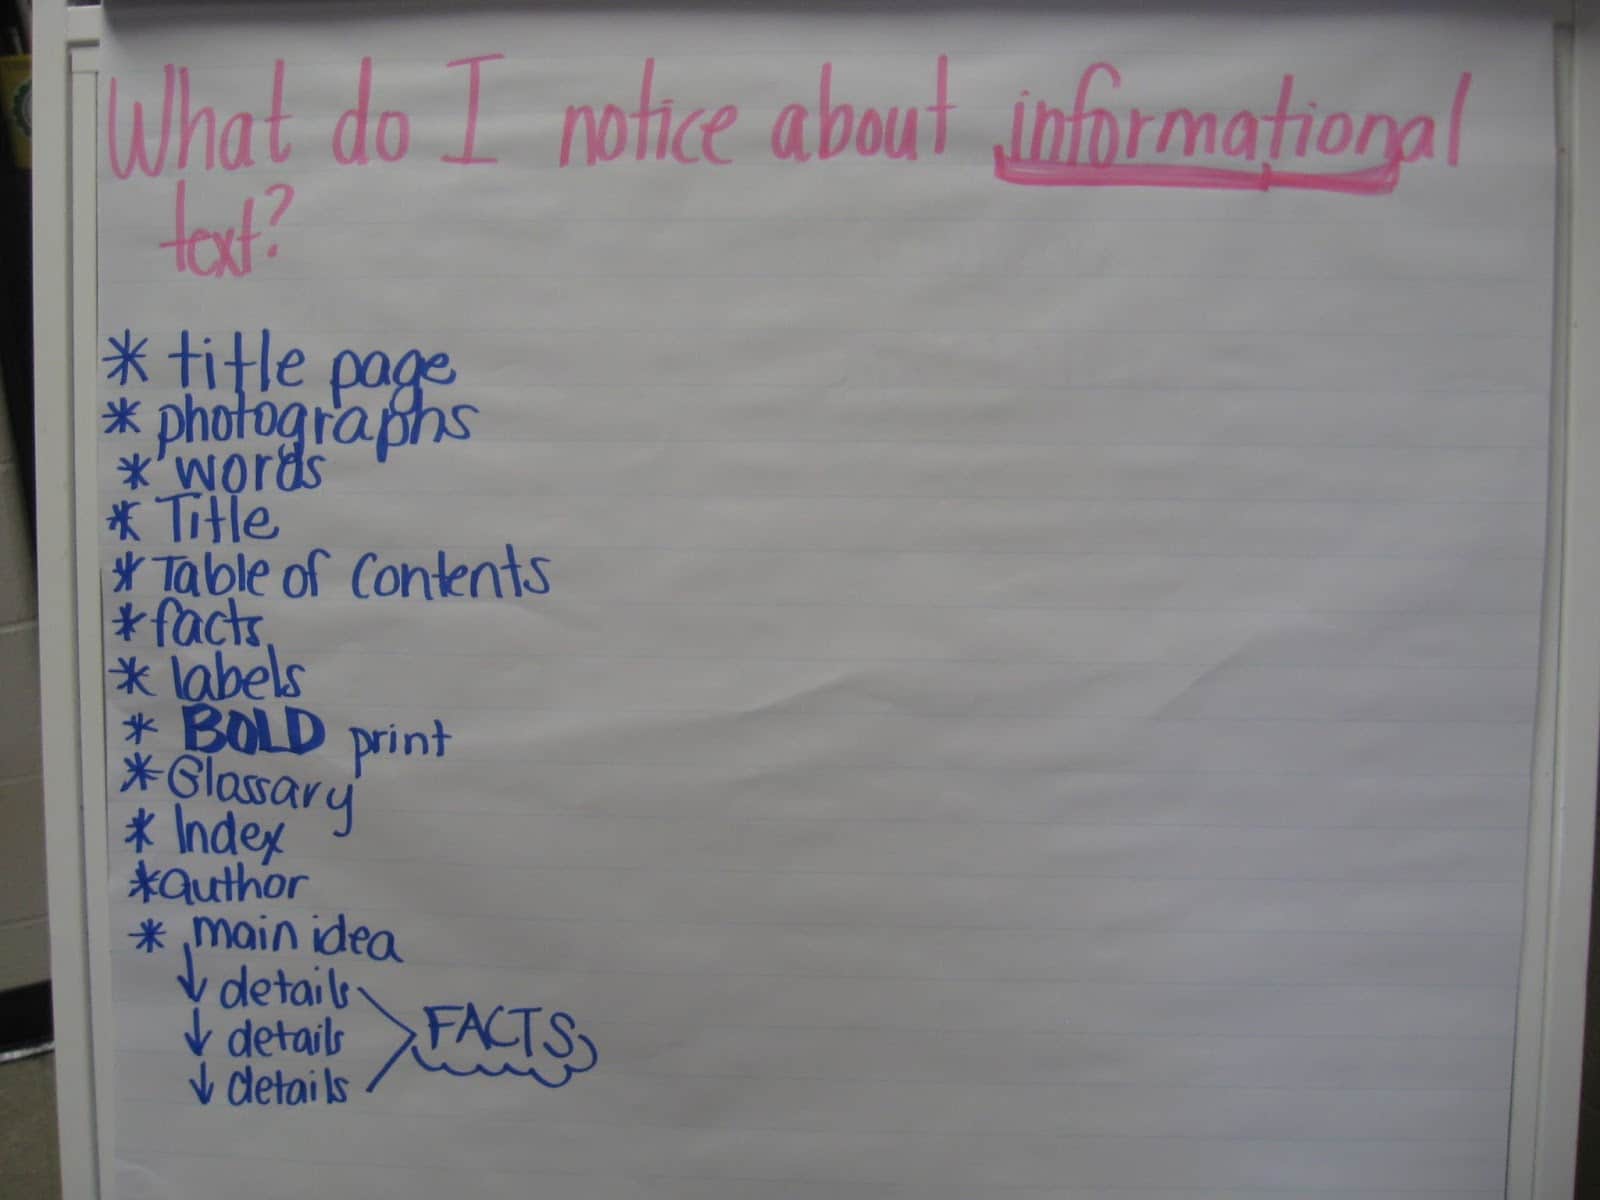 What do I notice about informational
text?
* title page
* photographs
* words
* Title
* Table of Contents
* facts
* labels
* BOLD print
* Glossary
* Index
* author
* main idea
↓ details
↓ details FACTS
↓ details